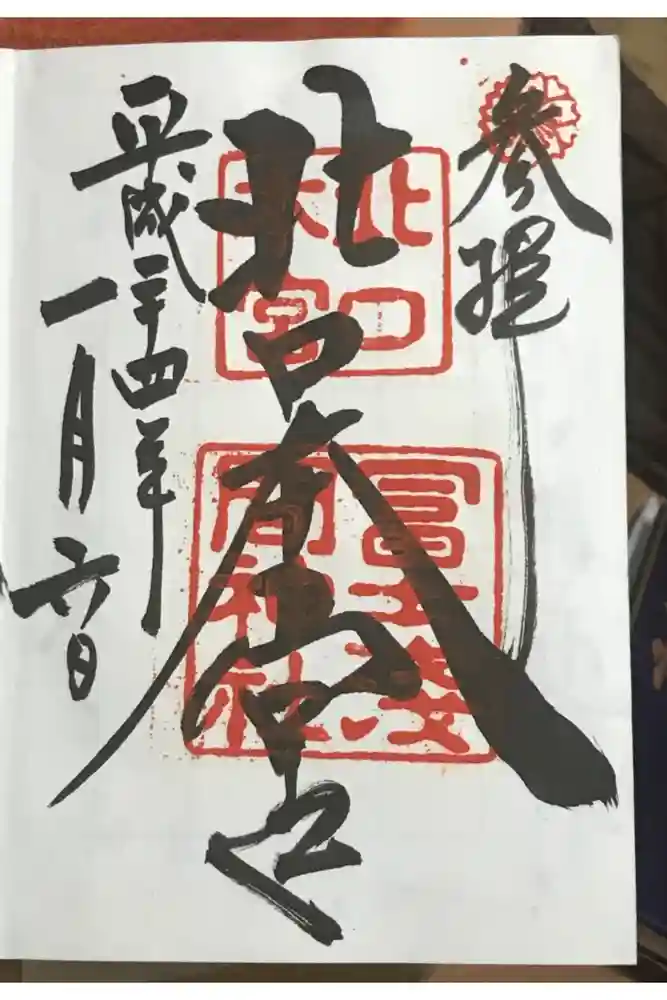 参拝
北口本宮
平成二十四年
一月六日
北口
本宮
冨士浅
間神社